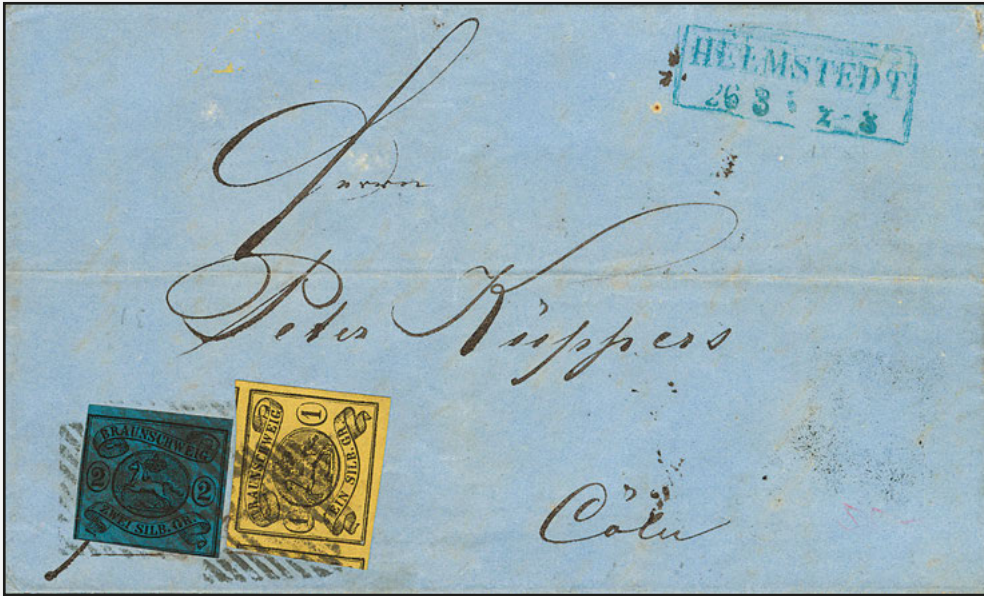 HELMSTEDT
26 3 2-3
Herrn
Peter Küppers
Cöln
BRAUNSCHWEIG
2 2
ZWEI SILB. GR.
BRAUNSCHWEIG
1 1
EIN SILB. GR.